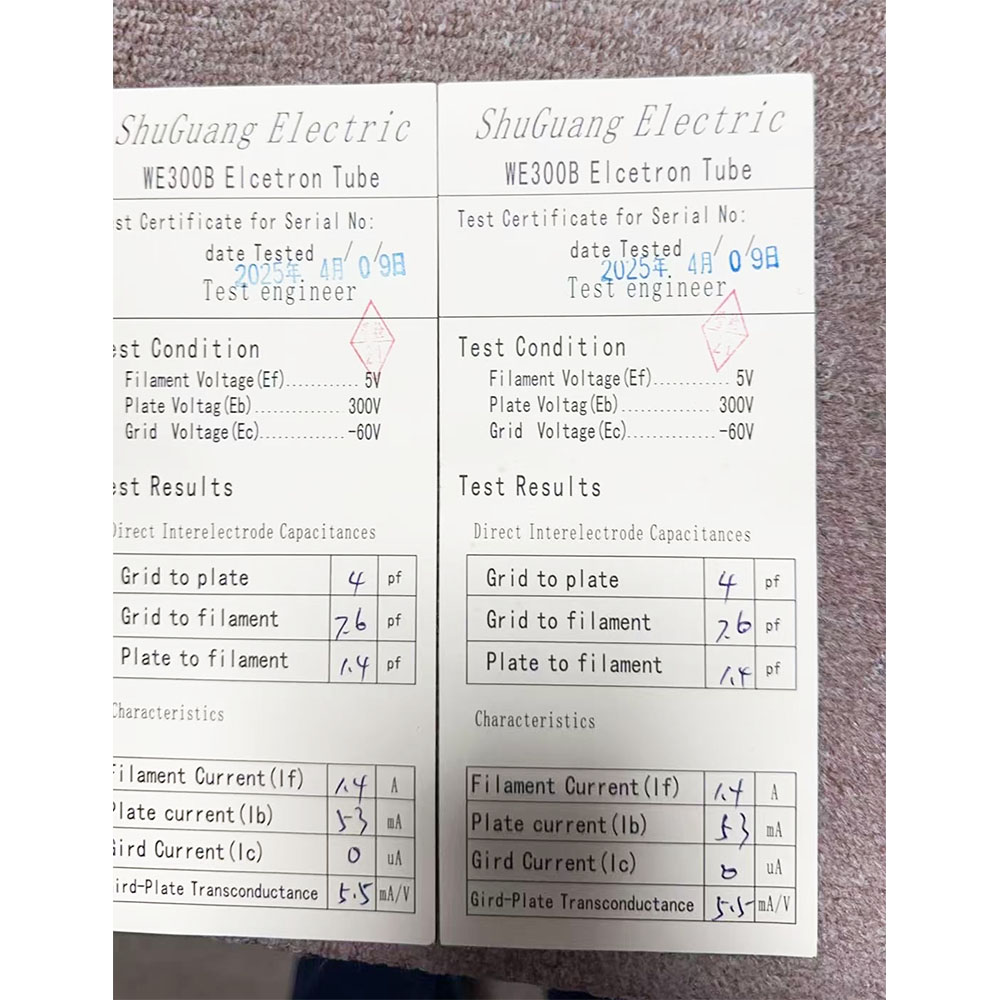 ShuGuang Electric
WE300B Elcetron Tube
st Certificate for Serial No:
date Tested / /
2025年 4月 09日
Test engineer
est Condition
Filament Voltage(Ef)............ 5V
Plate Voltag(Eb).............. 300V
Grid Voltage(Ec)..............-60V
est Results
Direct Interelectrode Capacitances
Grid to plate 4 pf
Grid to filament 7.6 pf
Plate to filament 1.4 pf
Characteristics
Filament Current(If) 1.4 A
Plate current(Ib) 53 mA
Gird Current(Ic) 0 uA
ird-Plate Transconductance 5.5 mA/V
ShuGuang Electric
WE300B Elcetron Tube
Test Certificate for Serial No:
date Tested / /
2025年. 4月 09日
Test engineer
Test Condition
Filament Voltage(Ef)............ 5V
Plate Voltag(Eb).............. 300V
Grid Voltage(Ec)..............-60V
Test Results
Direct Interelectrode Capacitances
Grid to plate 4 pf
Grid to filament 7.6 pf
Plate to filament 1.4 pf
Characteristics
Filament Current(If) 1.4 A
Plate current(Ib) 53 mA
Gird Current(Ic) 0 uA
Gird-Plate Transconductance 5.5 mA/V